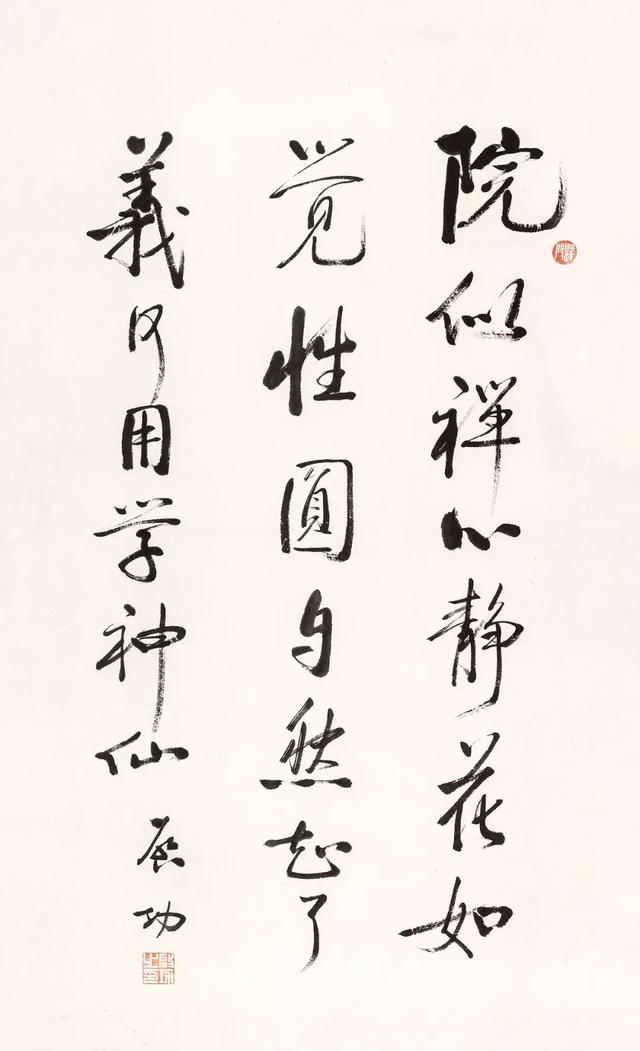 院似禅心静花如
觉性圆自然知了
義何用学神仙
启功